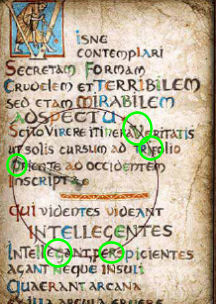 ISNE
CONTEMPLARI
SECRETAM FORMAM
CRUDELEM ET TERRIBILEM
SED ETAM MIRABILEM
ADSPECTU
SCITO VIRERE ITINERA VERITATIS
UT SOLIS CURSUM AD TRIFOLIO
ORIENTE AD OCCIDENTEM
INSCRIPTA
QUI VIDENTES VIDEANT
INTELLEGENTES
INTELLEGANT, PERSPICIENTES
AGANT NEQUE INSULI
QUAERANT ARCANA